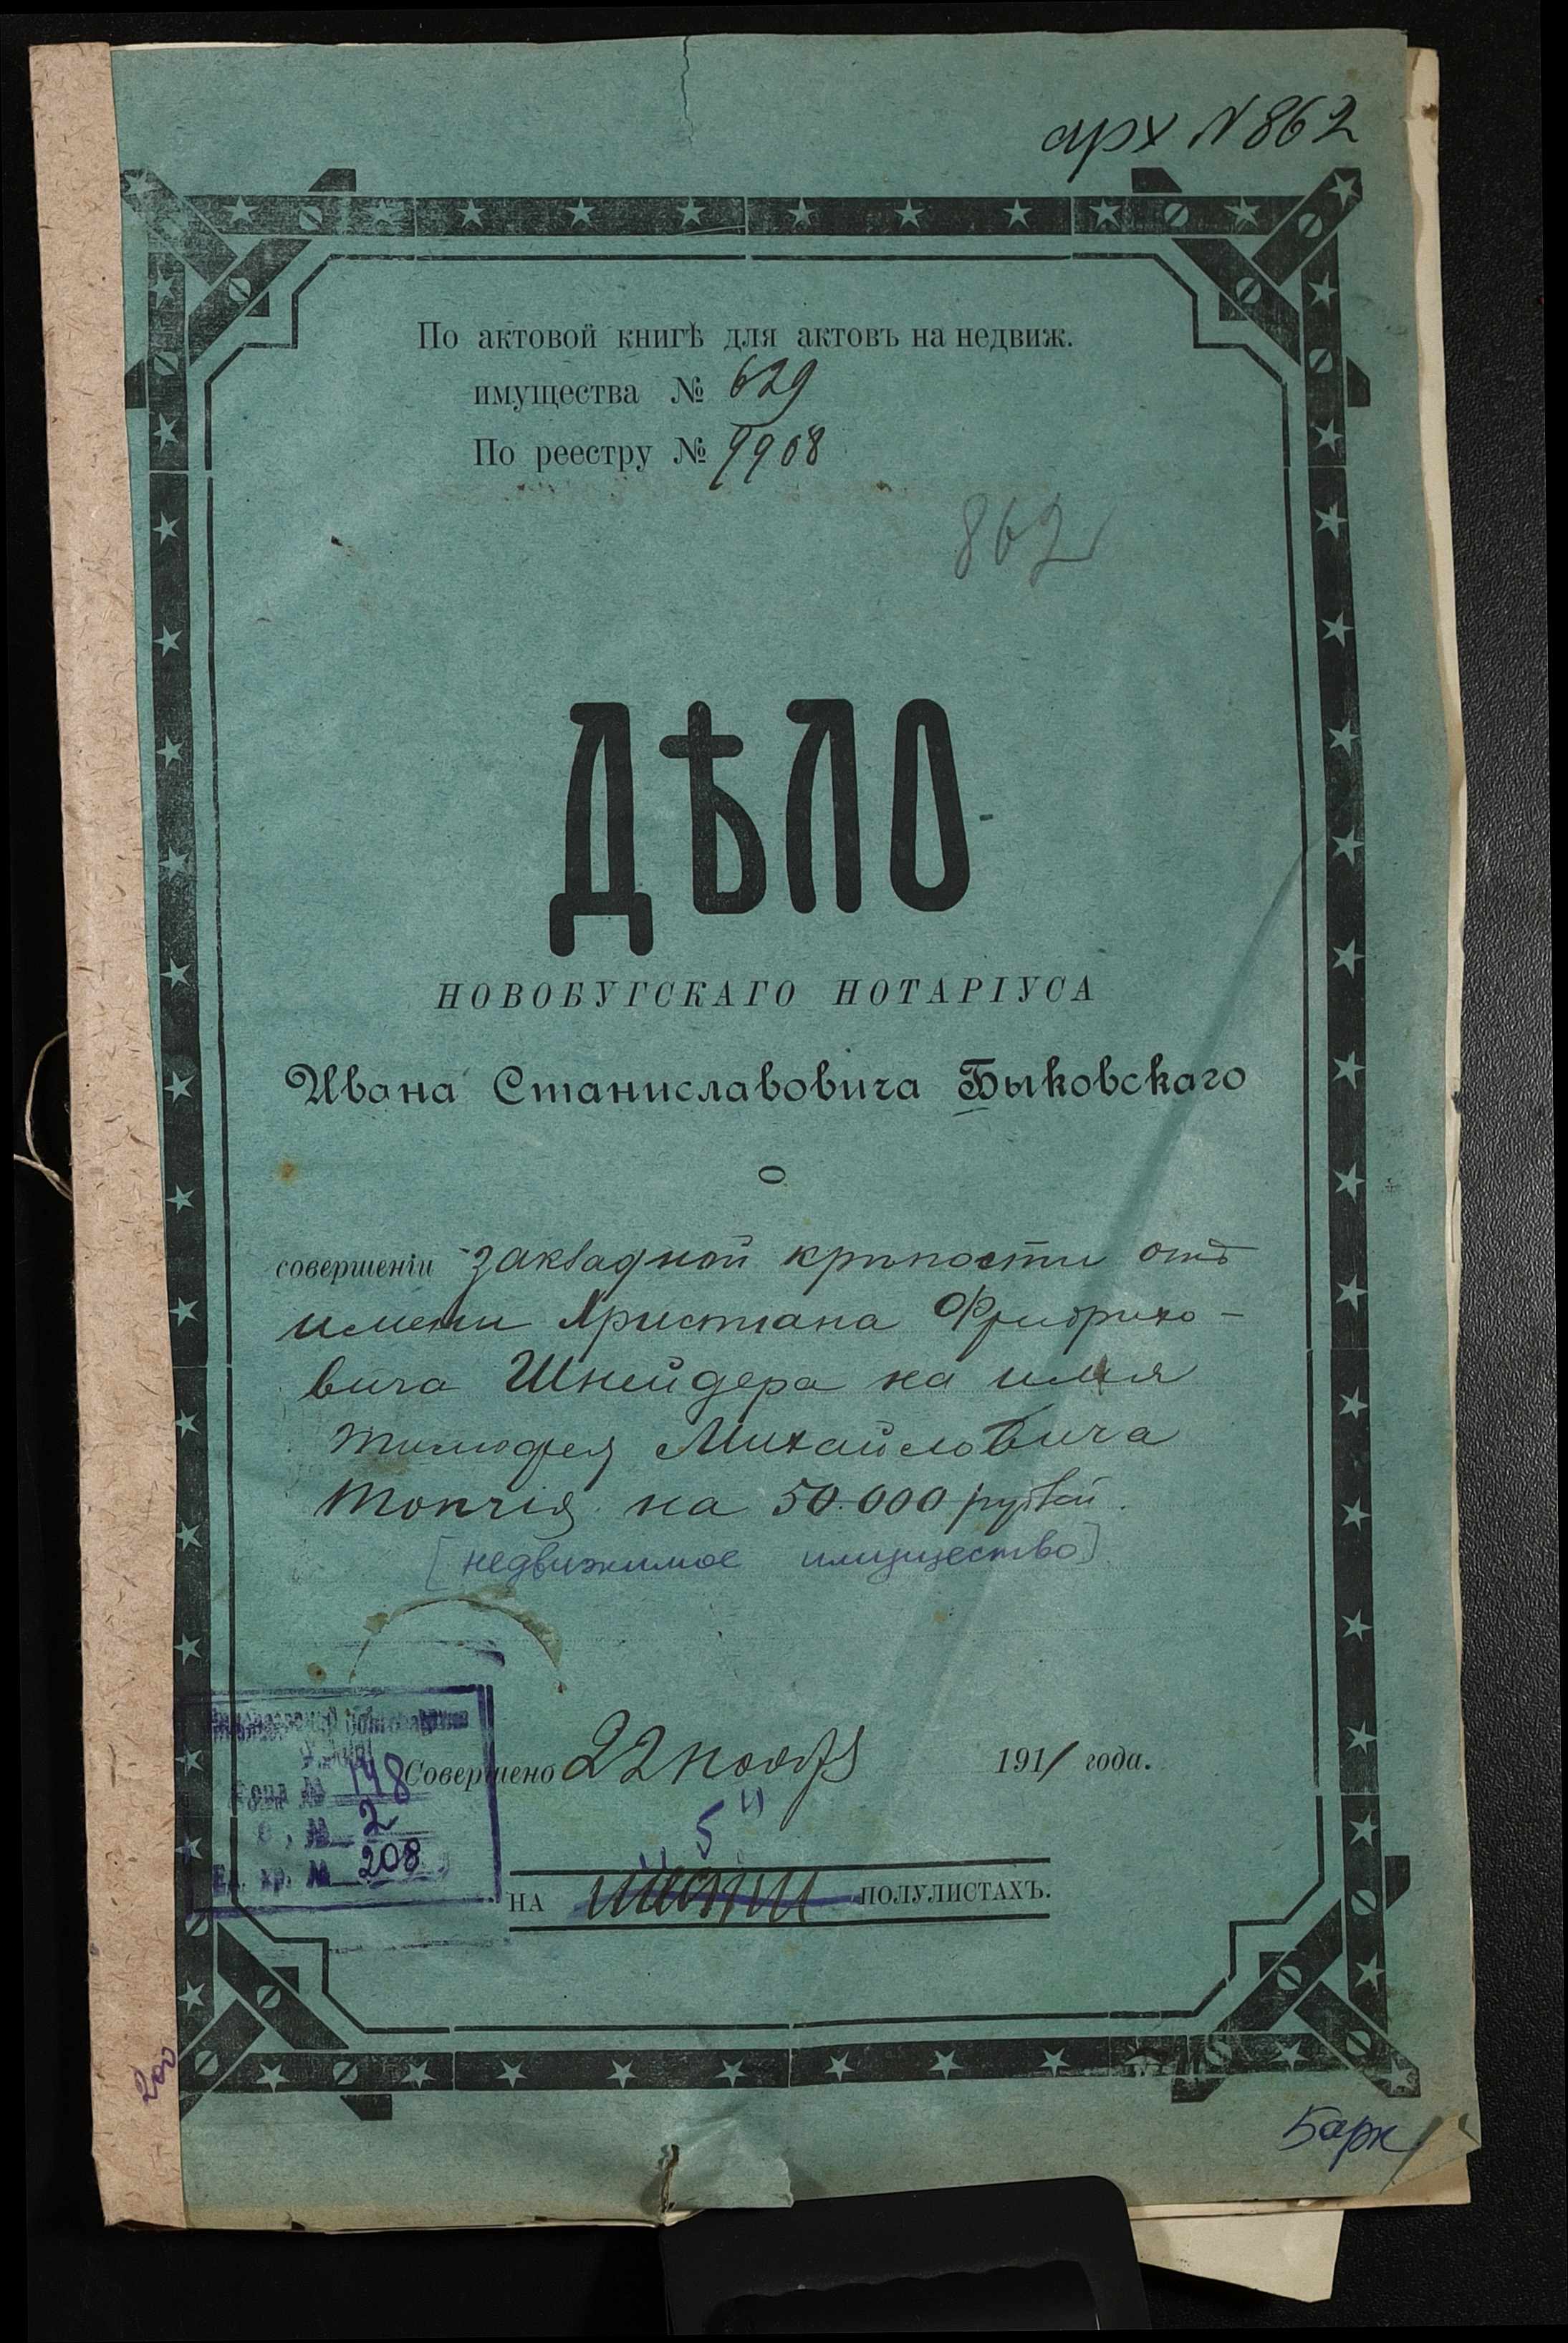 арх N 862
По актовой книгѣ для актовъ на недвиж.
имущества № 629
По реестру № 9908
862
ДѢЛО
НОВОБУГСКАГО НОТАРІУСА
Ивана Станиславовича Быковскаго
О
совершеніи закладной крѣпости отъ
имени Христіана Фридрихо-
вича Шнейдера на имя
Тимофея Михайловича
Топчія на 50.000 рублей.
[недвижимое имущество]
Фонд № 148
Совершено 22 ноября 1911 года.
О , № 2
5
Ед. хр. № 208
НА шести ПОЛУЛИСТАХЪ.
200